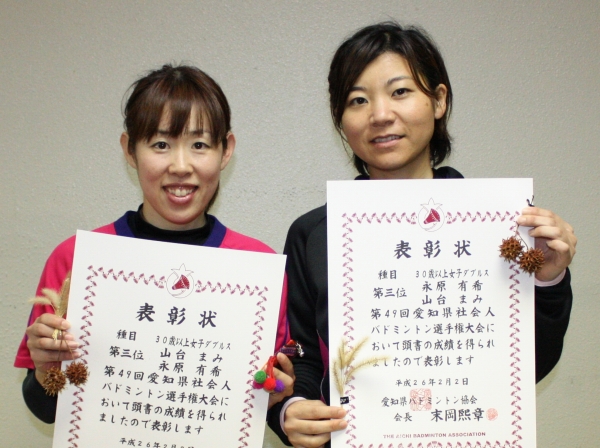 表彰状
種目 30歳以上女子ダブルス
第三位 山台 まみ
永原 有希
第49回愛知県社会人
バドミントン選手権大会に
おいて頭書の成績を得られ
ましたので表彰します
平成26年2月2日
表彰状
種目 30歳以上女子ダブルス
永原 有希
第三位 山台 まみ
第49回愛知県社会人
バドミントン選手権大会に
おいて頭書の成績を得られ
ましたので表彰します
平成26年2月2日
愛知県バドミントン協会
会長 末岡熙章
THE AICHI BADMINTON ASSOCIATION